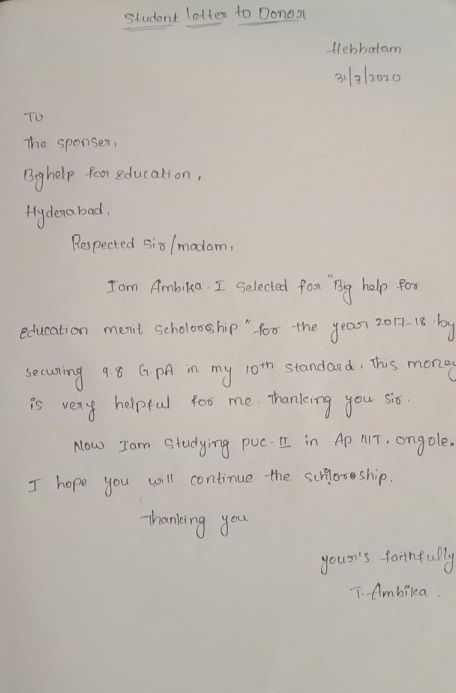 Student letter to Donor
Hebbatam
31/3/2020
To
The sponser,
Bighelp for education,
Hyderabad.
Respected Sir/madam,
Iam Ambika. I Selected for "Big help for
education merit scholorship" for the year 2017-18 by
securing 9.8 G.PA in my 10th standard. This money
is very helpful for me. Thanking you Sir.
Now Iam Studying puc-II in Ap IIIT, ongole.
I hope you will continue the scholorship.
Thanking you
your's faithfully
T. Ambika.